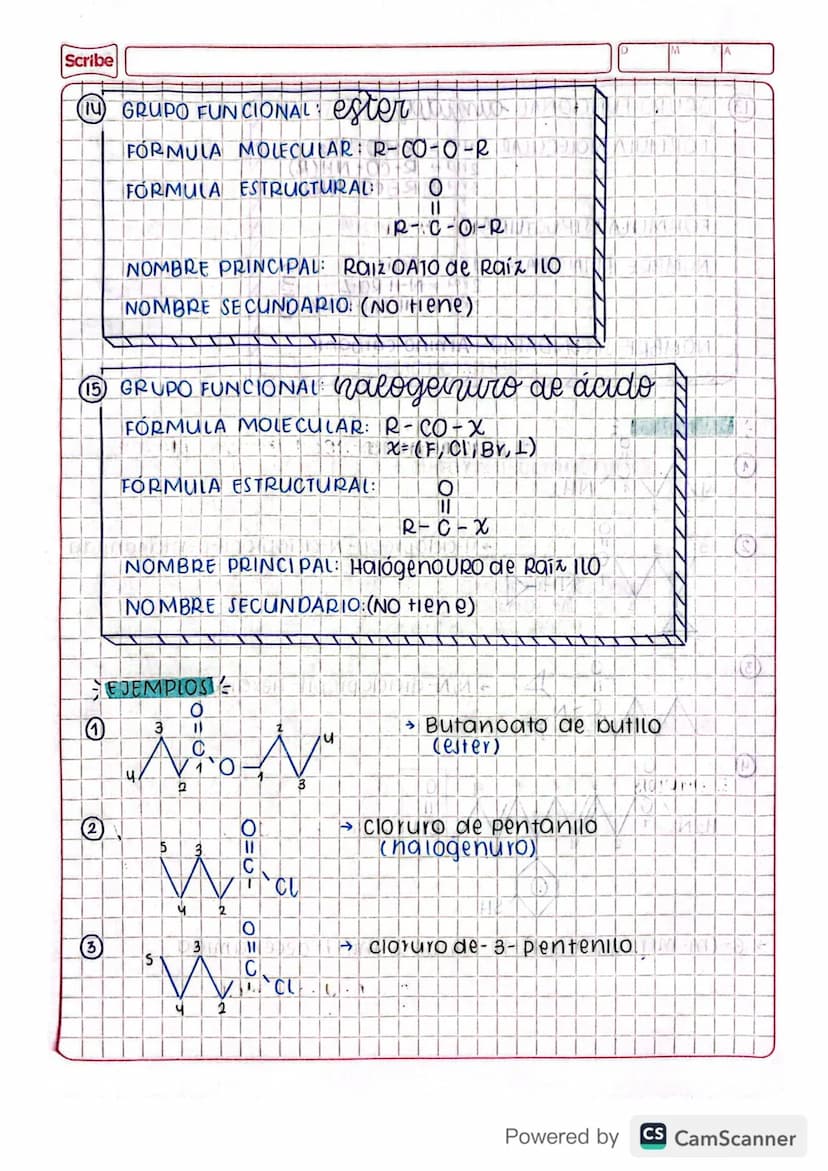 Scribe
D M A
14 GRUPO FUNCIONAL: ester
FÓRMULA MOLECULAR: R-CO-O-R
FÓRMULA ESTRUCTURAL:
O
||
R-C-O-R
NOMBRE PRINCIPAL: Raíz OATO de Raíz ILO
NOMBRE SECUNDARIO: (NO tiene)
15 GRUPO FUNCIONAL: halogenuro de ácido
FÓRMULA MOLECULAR: R-CO-X
X=(F, Cl, Br, I)
FÓRMULA ESTRUCTURAL:
O
||
R-C-X
NOMBRE PRINCIPAL: HalógenoURO de Raíz ILO
NOMBRE SECUNDARIO: (NO tiene)
EJEMPLOS
1 → Butanoato de butilo
(ester)
O
||
C
O
4 3 2 1 1 2 3 4
2 → cloruro de pentanilo
(halogenuro)
O
||
C
Cl
5 4 3 2 1
3 → cloruro de-3-pentenilo
O
||
C
Cl
5 4 3 2 1
Powered by CS CamScanner